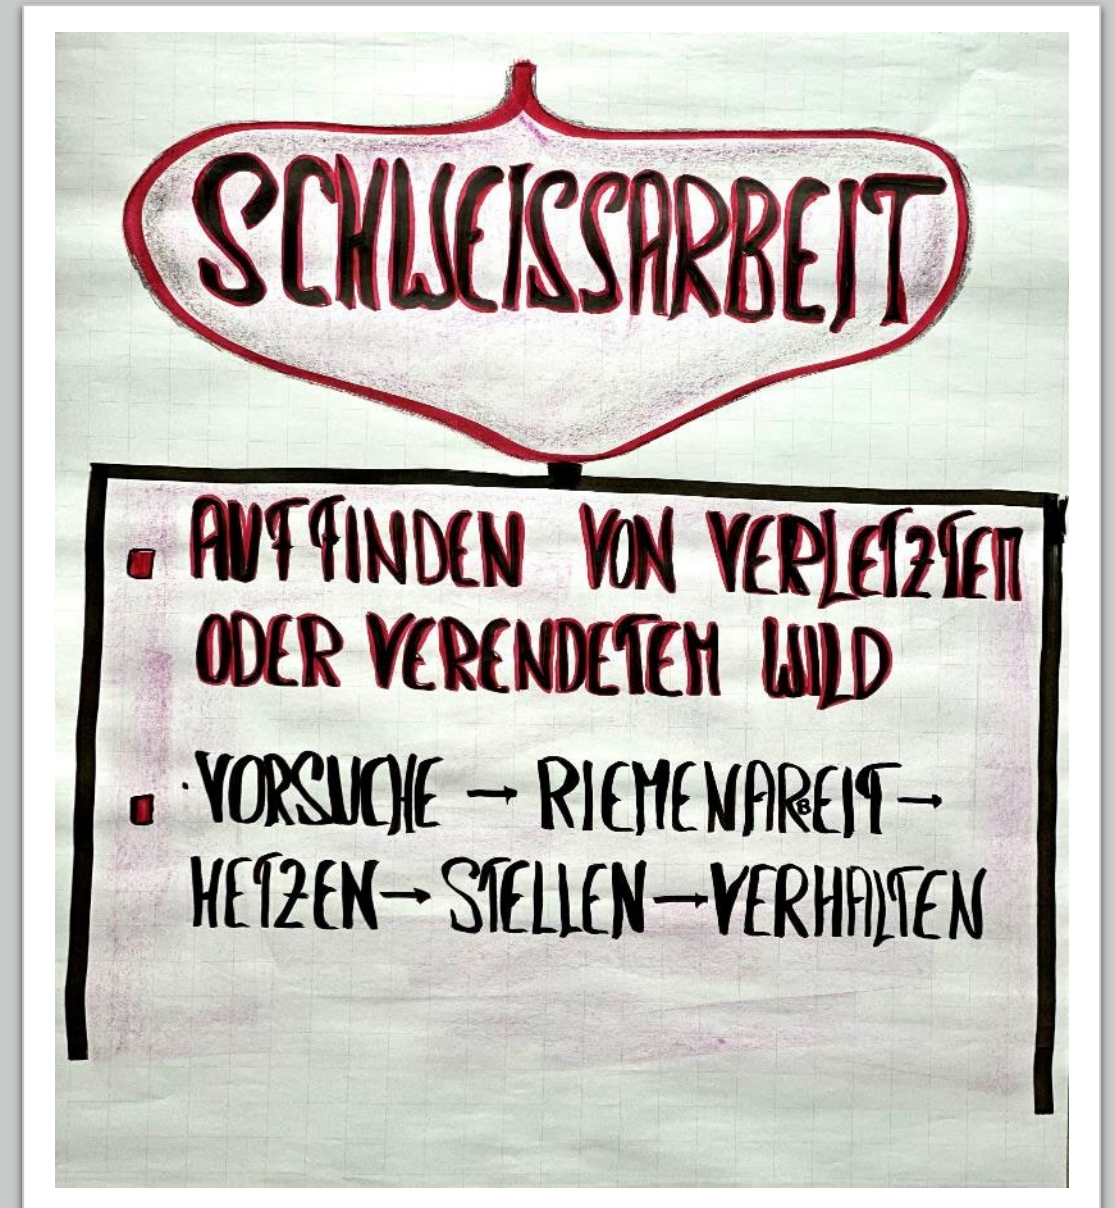 SCHWEISSARBEIT
AUFFINDEN VON VERLETZTEM
ODER VERENDETEM WILD
VORSUCHE → RIEMENARBEIT →
HETZEN → STELLEN → VERHALTEN